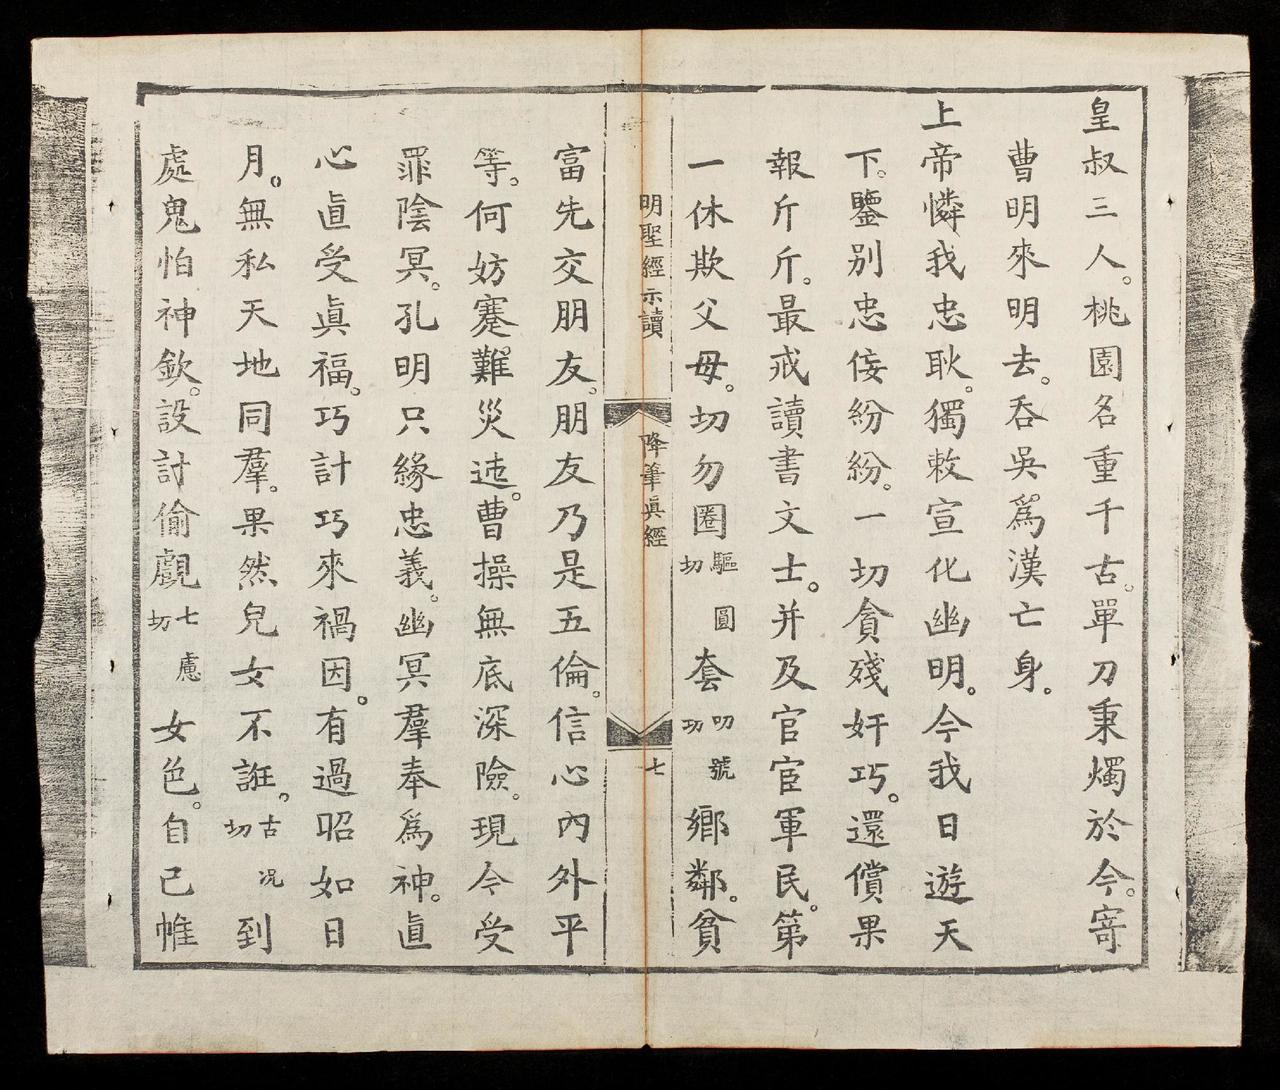 皇叔三人。桃園名重千古。單刀秉燭於今。寄
曹明來明去。吞吳爲漢亡身。
上帝憐我忠耿。獨敕宣化幽明。今我日遊天
下。鑒別忠佞紛紛。一切貪殘奸巧。還償果
報斤斤。最戒讀書文士。并及官宦軍民。第
一休欺父母。切勿圈驅圓切套叨號切鄉鄰。貧
明聖經示讀 降筆眞經 七
富先交朋友。朋友乃是五倫。信心內外平
等。何妨蹇難災迍。曹操無底深險。現今受
罪陰冥。孔明只緣忠義。幽冥羣奉爲神。直
心直受眞福。巧計巧來禍因。有過昭如日
月。無私天地同羣。果然兒女不誑。古况切到
處鬼怕神欽。設討偷覷七慮切女色。自己帷